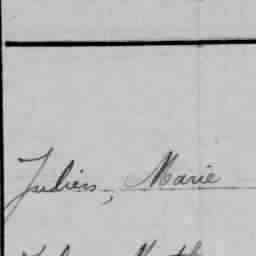 Julien, Marie